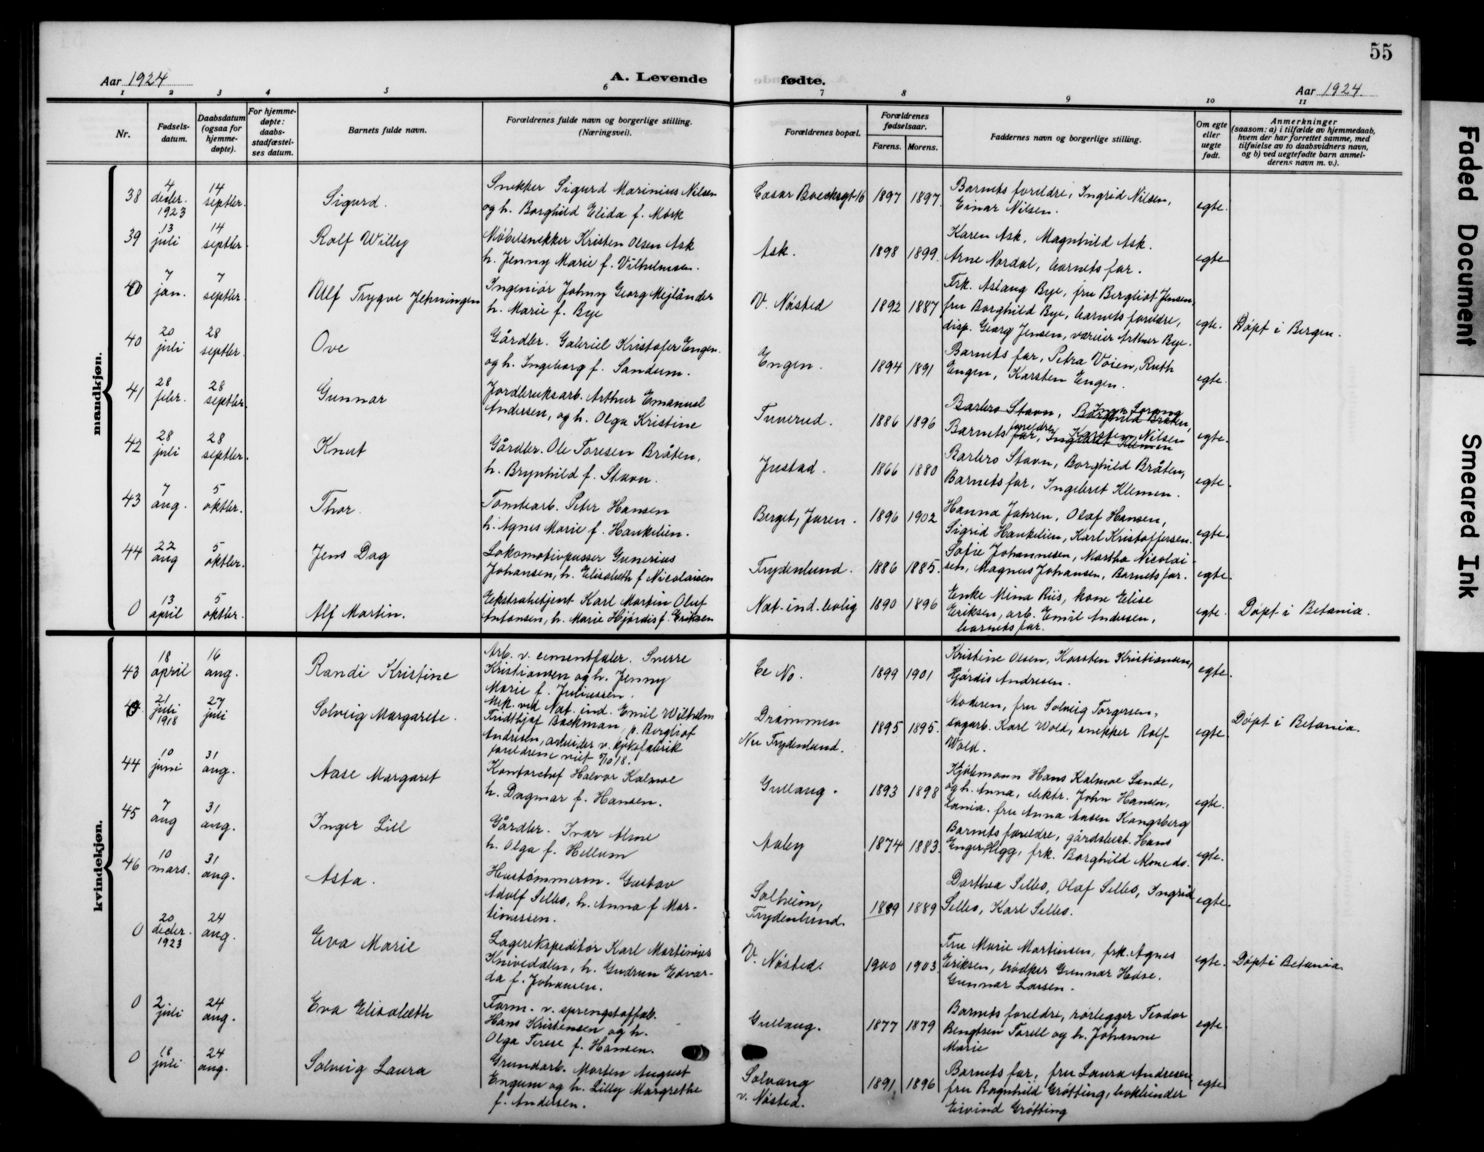 55
Aar 1924
A. Levende fødte.
Aar 1924.
1 2 3 4 5 6 7 8 9 10 11
Nr.
Fødsels-
datum.
Daabsdatum
(ogsaa for
hjemme-
døpte).
For hjemme-
døpte:
daabs-
stadfæstel-
ses datum.
Barnets fulde navn.
Forældrenes fulde navn og borgerlige stilling.
(Næringsvei).
Forældrenes bopæl.
Forældrenes
fødselsaar.
Farens. Morens.
Faddernes navn og borgerlige stilling.
Om egte
eller
uegte
født.
Anmerkninger
(saasom: a) i tilfælde av hjemmedaab,
hvem der har forrettet samme, med
tilføielse av to daabsvidners navn,
og b) ved uegtefødte barn anmel-
derens navn m. v.).
mandkjøn.
38
4
decbr.
1923
14
septbr.
Sigurd.
Snekker Sigurd Marinius Nilsen
og h. Borghild Elida f. Mørk
Cæsar Boecksgt 16
1897 1897.
Barnets foreldre, Ingrid Nilsen,
Einar Nilsen.
egte.
39
13
juli
14
septbr.
Rolf Willy
Møbelsnekker Kristen Olsen Ask
h. Jenny Marie f. Vilhelmsen.
Ask.
1898 1899.
Karen Ask, Magnhild Ask.
Arne Nordal, barnets far.
egte
0
7
jan.
7
septbr.
Ulf Trygve Flenningen
Ingeniør Johny Georg Mejlænder
h. Marie f. Bye
V. Nøsted
1892 1887
Frk. Aslaug Bye, fru Bergliot Jensen,
fru Borghild Bye, barnets foreldre,
disp. Georg Jensen, vareier Arthur Bye.
egte.
Døpt i Bergen.
40
20
juli
28
septbr.
Ove
Gårdbr. Gabriel Kristofer Engen.
og h. Ingeborg f. Sandum.
Engen.
1894 1891
Barnets far, Petra Vøien, Ruth
Engen, Karsten Engen.
egte.
41
28
febr.
28
septbr.
Gunnar
Jordbruksarb. Arthur Emanuel
Andersen, og h. Olga Kristine
Tuverud.
1886 1896
Barbro Stavn, Borghild Bråten,
Barnets foreldre, Karsten Nilsen
egte.
42
28
juli
28
septbr.
Knut
Gårdbr. Ole Toresen Bråten,
h. Brynhild f. Stavn.
Justad.
1866 1880
Barbro Stavn, Borghild Bråten,
Barnets far, Ingebret Klemen.
egte.
43
7
aug.
5
oktbr.
Thor.
Tomtearb. Peter Hansen
h. Agnes Marie f. Haukelien.
Berget, Juren.
1896 1902
Hanna Jahren, Olaf Hansen,
Sigrid Haukelien, Karl Kristoffersen.
egte.
44
22
aug
5
oktbr.
Jens Dag
Lokomotivpusser Gunerius
Johansen, h. Elisabeth f. Nicolaisen
Frydenlund.
1886 1885.
Sofie Johannesen, Martha Nicolai-
sen, Magnus Johansen, Barnets far.
egte.
0
13
april
5
oktbr.
Alf Martin.
Ekstrabetjent Karl Martin Oluf
Antonsen, h. Marie Hjørdis f. Eriksen
Nat. ind. bolig
1890 1896
Enke Mina Riis, kone Elise
Eriksen, arb. Emil Andersen,
barnets far.
egte.
Døpt i Betania.
kvindekjøn.
43
18
april
16
aug.
Randi Kristine
Arb. v. cementfaler. Snerre
Kristiansen og h. Jenny
Marie f. Juliussen.
Ce No.
1899 1901
Kristine Olsen, Karsten Kristiansen,
Hjørdis Andresen.
egte.
0
21
juli
1918
27
juli
Solveig Margarete.
Mek. ved Nat. ind. Emil Wilhelm
Fridthjof Backman, p. Bergliot
Andersen, arbeider v. kjeksfabrik
foreldrene viet 7/10 18.
Drammen
Nu Frydenlund.
1895 1895.
Moderen, fru Solveig Torgersen,
sagarb. Karl Wold, snekker Rolf
Wold.
egte
Døpt i Betania.
44
10
juni
31
aug.
Aase Margaret
Kontorchef Halvor Kalmoe
h. Dagmar f. Hansen.
Gullaug.
1893 1898
Kjøbmann Hans Kalmoe Sande,
og h. Anna, elektr. John Hansen,
Lania. fru Anna Aasen Kongsberg
egte.
45
7
aug
31
aug.
Inger Lill
Gårdbr. Ivar Alme
h. Olga f. Hellum
Aaby
1874 1883.
Barnets foreldre, gårdsbest. Hans
Enger Hegg, frk. Borghild Mone do.
egte.
46
10
mars.
31
aug.
Asta.
Hustømmerm. Gustav
Adolf Selbo, h. Anna f. Mar-
tinussen.
Solheim,
Frydenlund.
1889 1889
Darthea Selbo, Olaf Selbo, Ingrid
Selbo, Karl Selbo.
egte.
0
20
decbr.
1923
24
aug.
Eva Marie
Lagerekspeditør Karl Martinius
Knivedalen, h. Gudrun Edvar-
da f. Johansen.
V. Nøsted.
1900 1903
Fru Marie Martinsen, frk. Agnes
Eriksen, bødker Gunnar Hofse.
Gunnar Larsen.
egte.
Døpt i Betania.
0
2
juli
24
aug.
Eva Elisabeth
Form. v. sprengstoffab.
Hans Kristensen og h.
Olga Terese f. Hansen.
Gullaug.
1877 1879
Barnets foreldre, rørlegger Teodor
Bengtsen Torell og h. Johanne
Marie
egte.
0
18
juli
24
aug.
Solveig Laura
Grundarb. Morten August
Engum og h. Lilly Margrethe
f. Andersen.
Solvang
v. Nøsted.
1891 1896
Barnets far, fru Laura Andresen
fru Ragnhild Grøtting, bokbinder
Eivind Grøtting
egte
Faded Document
Smeared Ink